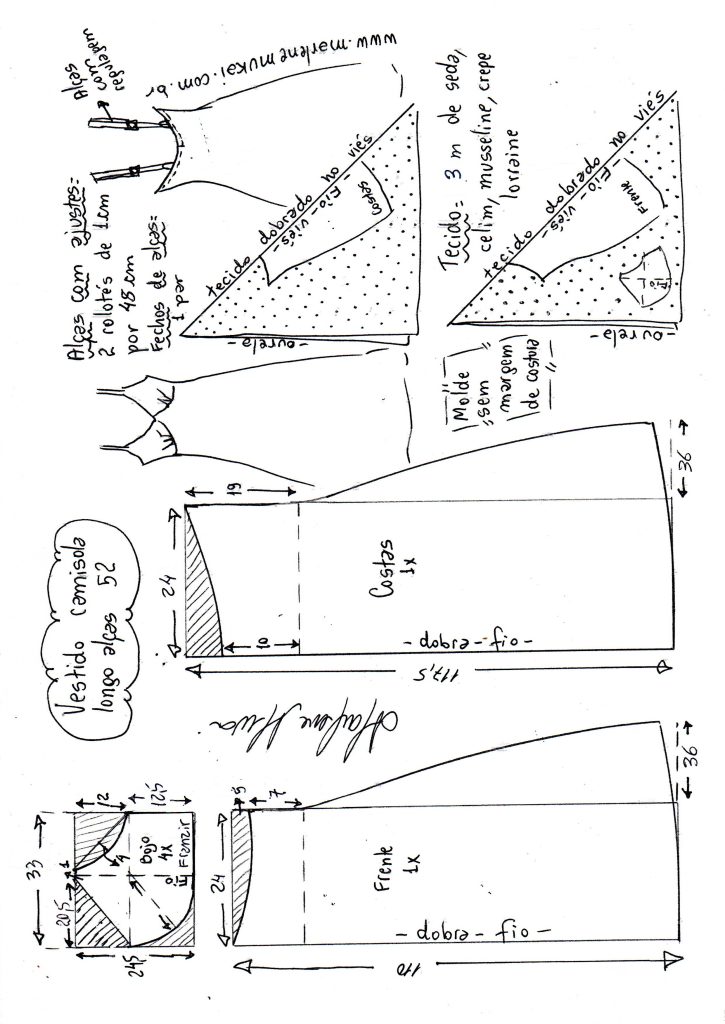 Vestido camisola
longo alças 52
Alças com ajustes=
2 rolotês de 1cm
por 48 cm
Fechos de alças=
1 par
Alças
com
regulagem
www.marlenemukai.com.br
tecido dobrado no viés
-Fio-viés-
Costas
-ourela-
Tecido= 3 m de seda,
cetim, musseline, crepe
lorraine
tecido dobrado no viés
-Fio-viés-
Frente
Fio
-ourela-
Molde
sem
margem
de costura
33
20,5
1
12
12,5
24,5
4
Bojo
4x
Franzir
24
19
10
Costas
1x
-dobra-fio-
117,5
36
24
3
7
Frente
1x
-dobra-fio-
110
36